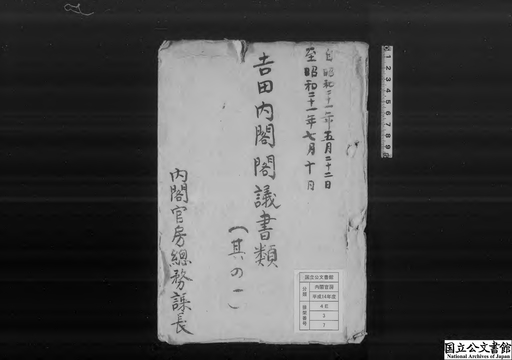 自昭和二十一年五月二十二日
至昭和二十一年七月十日
吉田内閣閣議書類
(其の一)
内閣官房總務課長
国立公文書館
分類
内閣官房
平成14年度
4E
排架番号
1 2 3 4 5 6 7 8 9
国立公文書館
National Archives of Japan